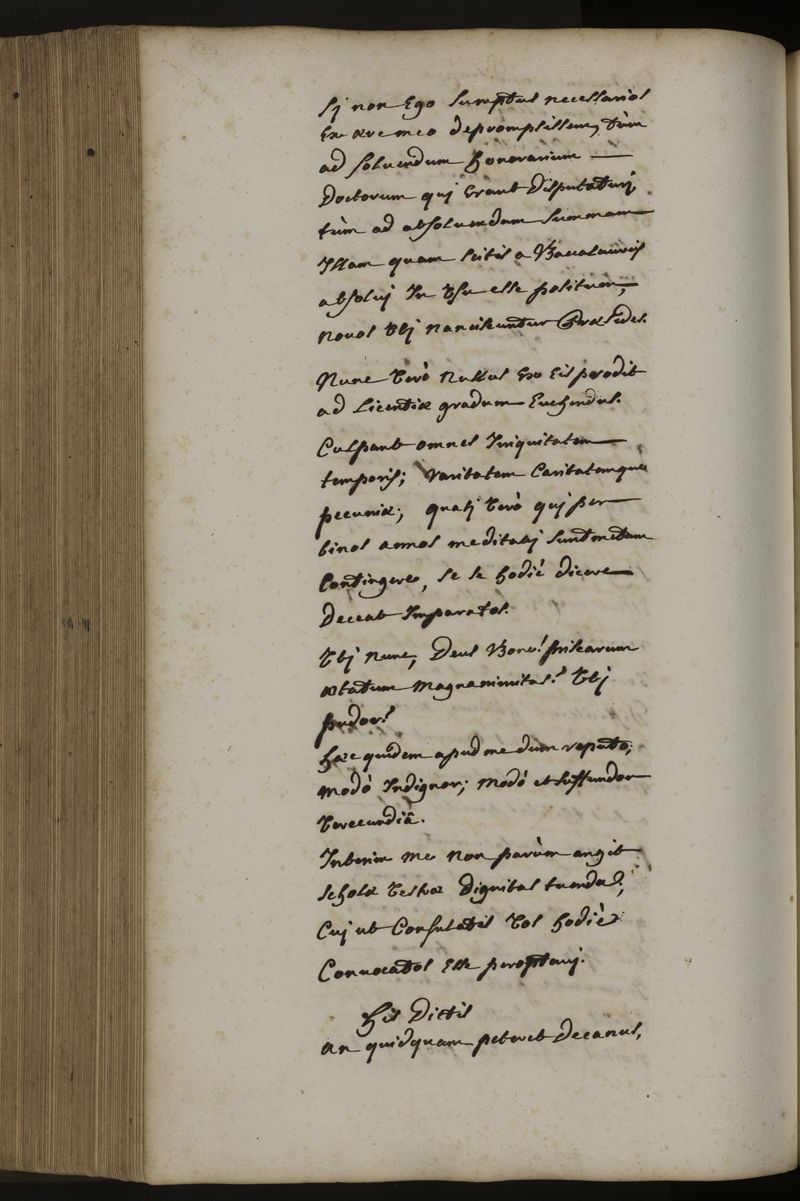 Sj non Ego Sumptus necessarios
Ex ære meo deprompsissem, tùm
ad Soluendum honorarium —
Doctorum quj Erant Disputaturj,
tùm ad absoluendam Summam
Istam quam Scitis a Baccalaureis
absoluj In Vsu esse positum,
novos Vbj nanciscuntur Præsides.
Nunc Verò Nullus Ex Eis prodit
ad Licentiæ gradum Euehendus.
Culpant omnes Iniquitatem
temporis; raritatem Caritatemque
pecuniæ; quasj Verò quj per
binos annos meditatj sunt metam
Contingere, se se hodiè dicere
Deceat Imparatos.
Vbj Nunc, Deus Bone! priscarum
ætatum Magnanimitas? Vbj
pudor?
hæc quidem apud me dum reputo;
modò Indignor; modò et suffundor
Verecundiâ.
Interim me non parùm angit
Scholæ Vestræ Dignitas tuenda;
Cuj ut Consulatis Vos hodiè
Conuocatos Esse peroptauj.
his Dictis
an quidquam peteret Decanus,